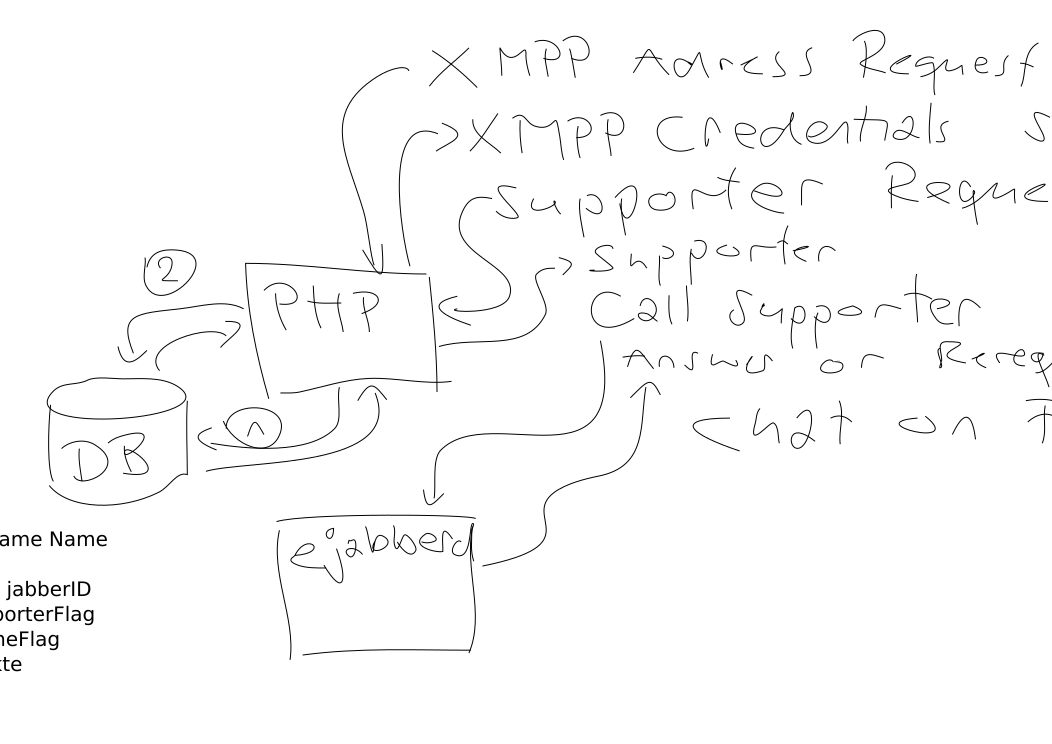 XMPP Adress Request
XMPP Credentials S
Supporter Reque
Supporter
Call Supporter
Answer or Rereq
Chat on F
2
PHP
1
DB
ejabberd
ame Name
jabberID
porterFlag
neFlag
kte